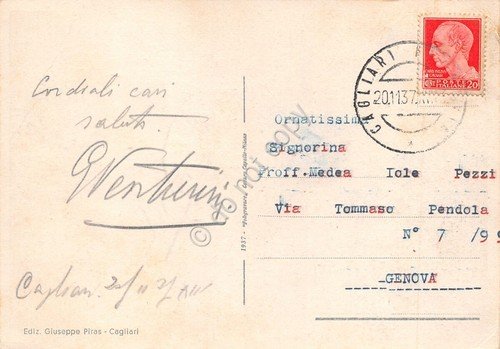 Cordiali cari
saluti.
GVenturini
Cagliari 20/11 37 XVI
Ediz. Giuseppe Piras - Cagliari
1937 -
CAGLIARI
20.11.37.
20
Ornatissima
Signorina
Proff.Medea Iole Pezzi
Via Tommaso Pendola
N° 7 /99
GENOVA
© do not copy